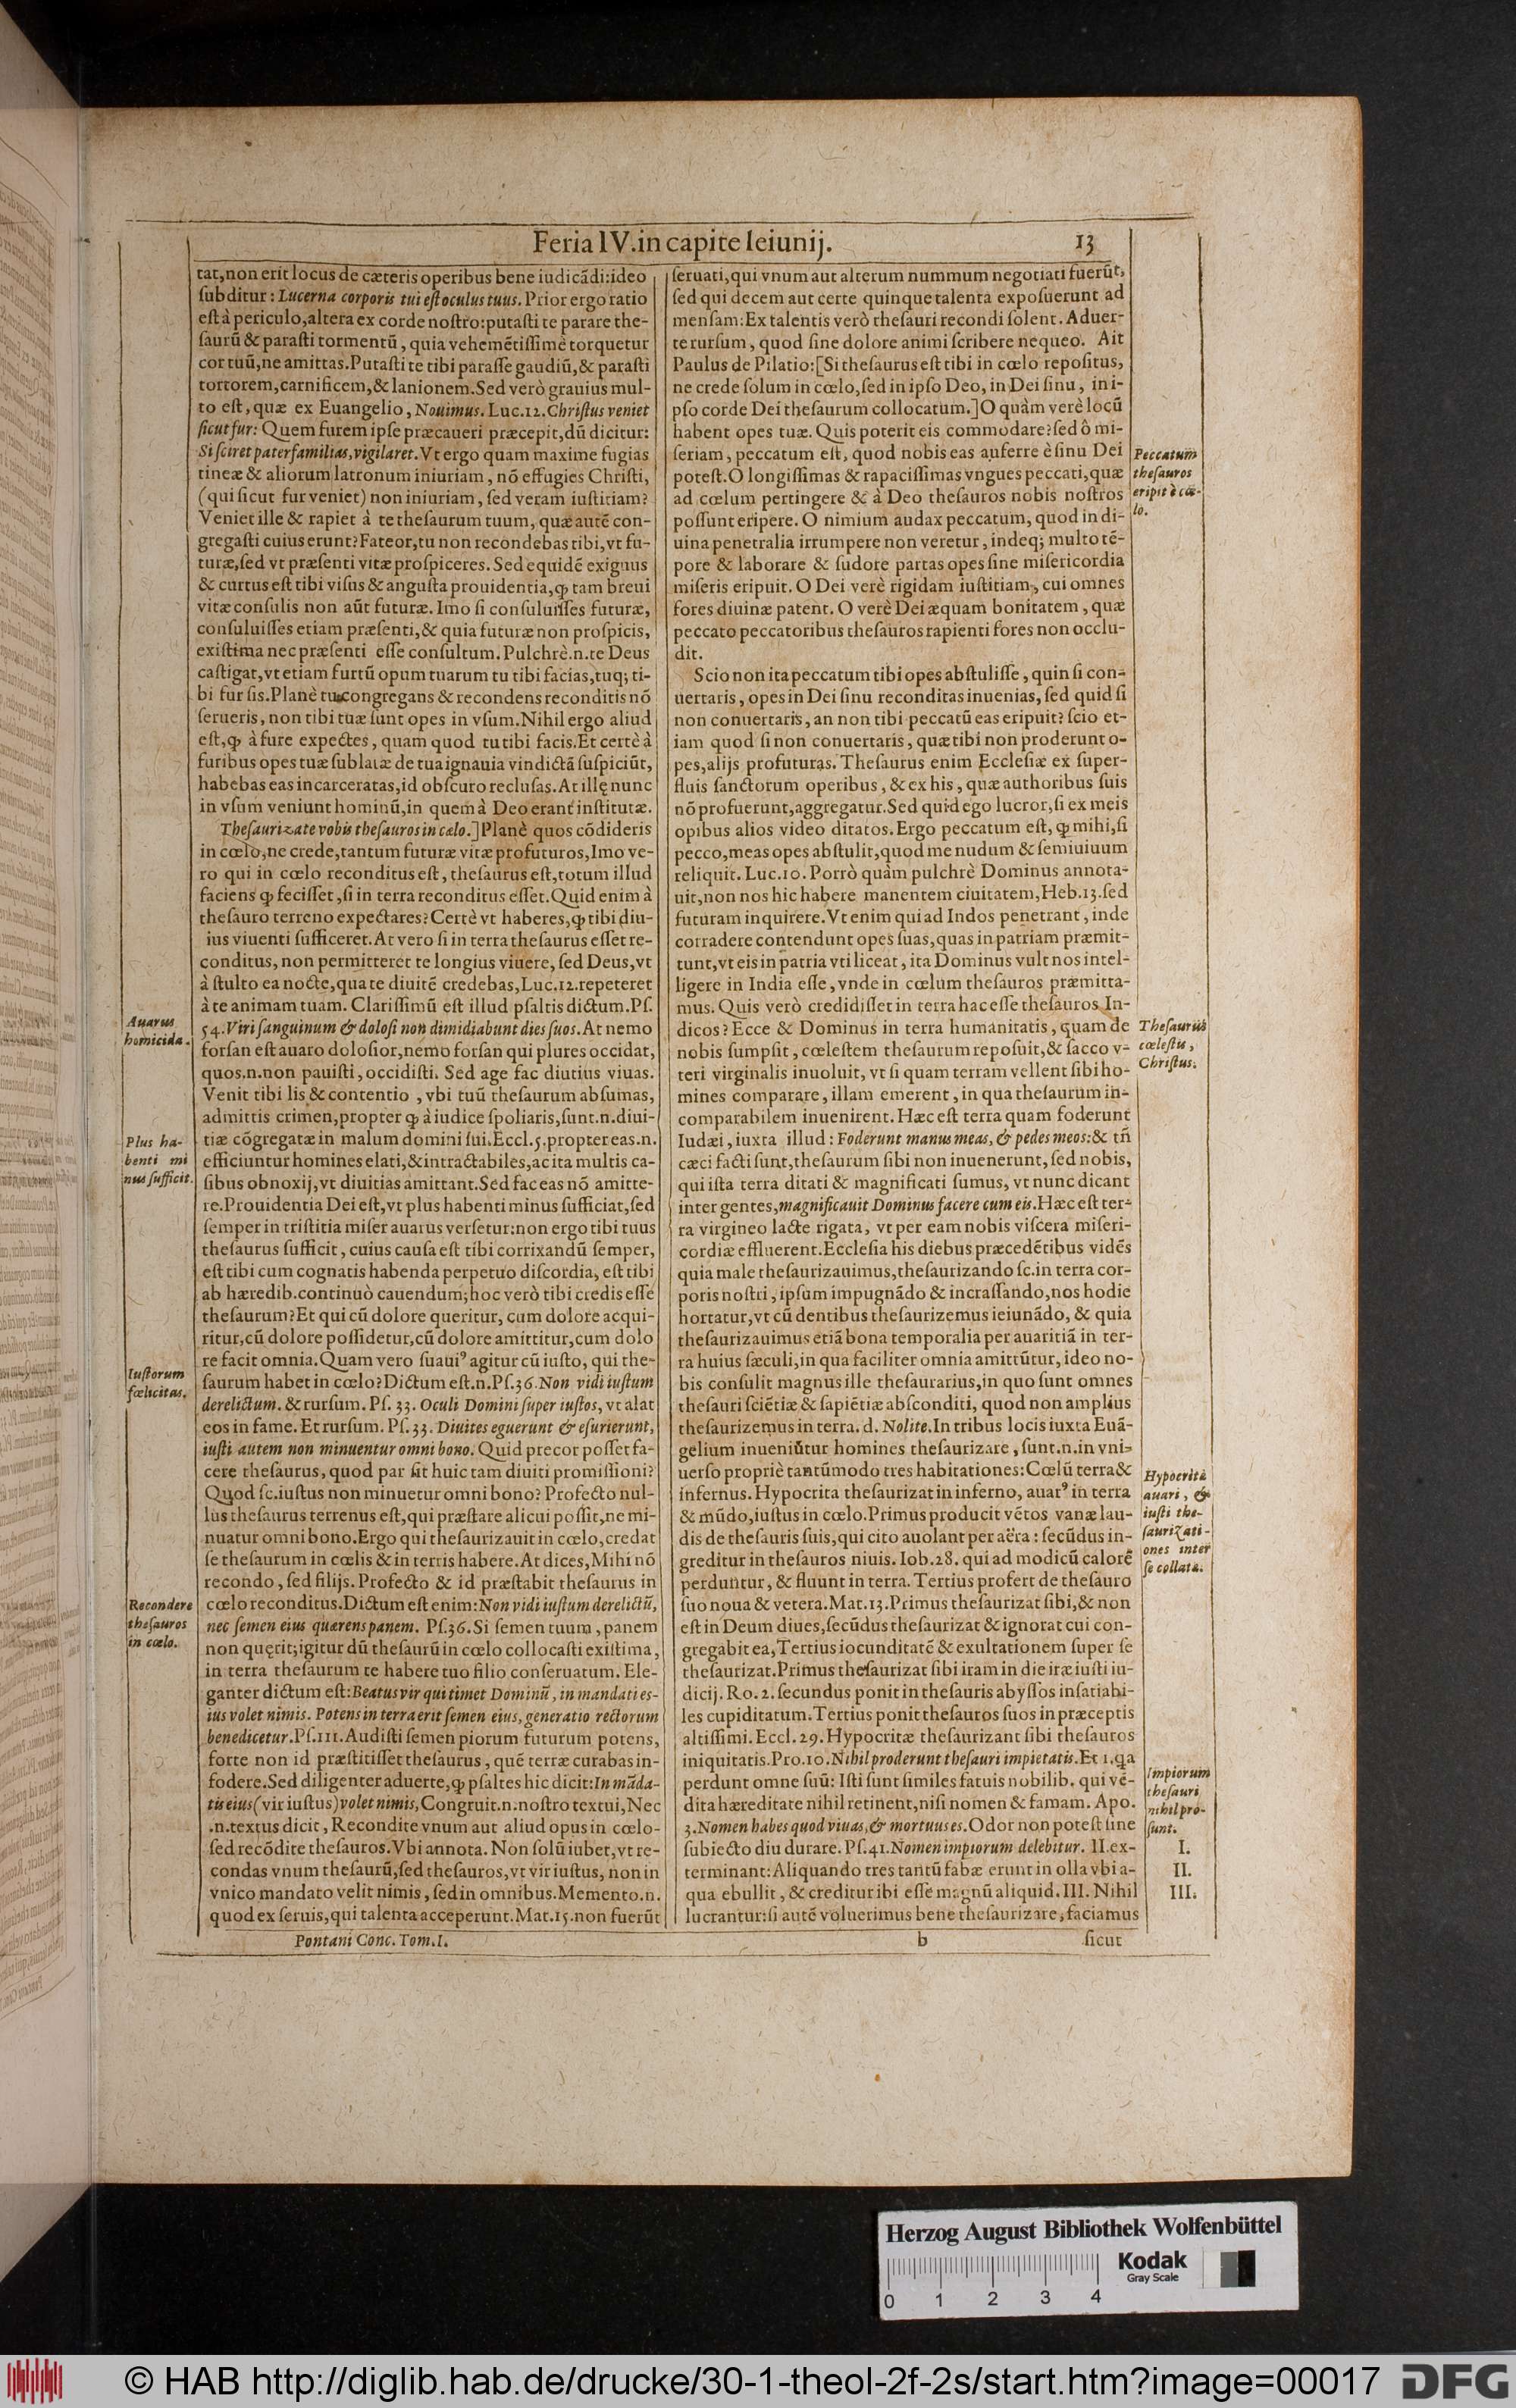 Feria IV. in capite Ieiunij. 13
tat, non erit locus de cæteris operibus bene iudicãdi: ideo
ſubditur: Lucerna corporis tui eſt oculus tuus. Prior ergo ratio
eſt à periculo, altera ex corde noſtro: putaſti te parare the-
ſaurũ & paraſti tormentũ, quia vehemẽtiſſimè torquetur
cor tuũ, ne amittas. Putaſti te tibi paraſſe gaudiũ, & paraſti
tortorem, carnificem, & lanionem. Sed verò grauius mul-
to eſt, quæ ex Euangelio, Nouimus. Luc. 12. Chriſtus veniet
ſicut fur: Quem furem ipſe præcaueri præcepit, dũ dicitur:
Si ſciret paterfamilias, vigilaret. Vt ergo quam maxime fugias
tineæ & aliorum latronum iniuriam, nõ effugies Chriſti,
(qui ſicut fur veniet) non iniuriam, ſed veram iuſtitiam?
Veniet ille & rapiet à te theſaurum tuum, quæ autẽ con-
gregaſti cuius erunt? Fateor, tu non recondebas tibi, vt fu-
turæ, ſed vt præſenti vitæ proſpiceres. Sed equidẽ exiguus
& curtus eſt tibi viſus & anguſta prouidentia, ꝙ tam breui
vitæ conſulis non aũt futuræ. Imo ſi conſuluiſſes futuræ,
conſuluiſſes etiam præſenti, & quia futuræ non proſpicis,
exiſtima nec præſenti eſſe conſultum. Pulchrè .n. te Deus
caſtigat, vt etiam furtũ opum tuarum tu tibi facias, tuq; ti-
bi fur ſis. Planè tu congregans & recondens reconditis nõ
ſerueris, non tibi tuæ ſunt opes in vſum. Nihil ergo aliud
eſt, ꝙ à fure expectes, quam quod tu tibi facis. Et certè à
furibus opes tuæ ſublatæ de tua ignauia vindictã ſuſpiciũt,
habebas eas incarceratas, id obſcuro recluſas. At illę nunc
in vſum veniunt hominũ, in quem à Deo erant inſtitutæ.
Theſaurizate vobis theſauros in cælo.] Planè quos cõdideris
in cœlo, ne crede, tantum futuræ vitæ profuturos, Imo ve-
ro qui in cœlo reconditus eſt, theſaurus eſt, totum illud
faciens ꝙ feciſſet, ſi in terra reconditus eſſet. Quid enim à
theſauro terreno expectares? Certè vt haberes, ꝙ tibi diu-
ius viuenti ſufficeret. At vero ſi in terra theſaurus eſſet re-
conditus, non permitteret te longius viuere, ſed Deus, vt
à ſtulto ea nocte, qua te diuitẽ credebas, Luc. 12. repeteret
à te animam tuam. Clariſſimũ eſt illud pſaltis dictum. Pſ.
54. Viri ſanguinum & doloſi non dimidiabunt dies ſuos. At nemo
forſan eſt auaro doloſior, nemo forſan qui plures occidat,
quos .n. non pauiſti, occidiſti. Sed age fac diutius viuas.
Venit tibi lis & contentio, vbi tuũ theſaurum abſumas,
admittis crimen, propter ꝙ à iudice ſpoliaris, ſunt .n. diui-
tiæ cõgregatæ in malum domini ſui. Eccl. 5. propter eas .n.
efficiuntur homines elati, & intractabiles, ac ita multis ca-
ſibus obnoxij, vt diuitias amittant. Sed fac eas nõ amitte-
re. Prouidentia Dei eſt, vt plus habenti minus ſufficiat, ſed
ſemper in triſtitia miſer auarus verſetur: non ergo tibi tuus
theſaurus ſufficit, cuius cauſa eſt tibi corrixandũ ſemper,
eſt tibi cum cognatis habenda perpetuo diſcordia, eſt tibi
ab hæredib. continuò cauendum; hoc verò tibi credis eſſe
theſaurum? Et qui cũ dolore queritur, cum dolore acqui-
ritur, cũ dolore poſſidetur, cũ dolore amittitur, cum dolo
re facit omnia. Quam vero ſuauiꝰ agitur cũ iuſto, qui the-
ſaurum habet in cœlo? Dictum eſt .n. Pſ. 36. Non vidi iuſtum
derelictum. & rurſum. Pſ. 33. Oculi Domini ſuper iuſtos, vt alat
eos in fame. Et rurſum. Pſ. 33. Diuites eguerunt & eſurierunt,
iuſti autem non minuentur omni bono. Quid precor poſſet fa-
cere theſaurus, quod par ſit huic tam diuiti promiſſioni?
Quod ſc. iuſtus non minuetur omni bono? Profecto nul-
lus theſaurus terrenus eſt, qui præſtare alicui poſſit, ne mi-
nuatur omni bono. Ergo qui theſaurizauit in cœlo, credat
ſe theſaurum in cœlis & in terris habere. At dices, Mihi nõ
recondo, ſed filijs. Profecto & id præſtabit theſaurus in
cœlo reconditus. Dictum eſt enim: Non vidi iuſtum derelictũ,
nec ſemen eius quærens panem. Pſ. 36. Si ſemen tuum, panem
non quęrit; igitur dũ theſaurũ in cœlo collocaſti exiſtima,
in terra theſaurum te habere tuo filio conſeruatum. Ele-
ganter dictum eſt: Beatus vir qui timet Dominũ, in mandati es-
ius volet nimis. Potens in terra erit ſemen eius, generatio rectorum
benedicetur. Pſ. 111. Audiſti ſemen piorum futurum potens,
forte non id præſtitiſſet theſaurus, quẽ terræ curabas in-
fodere. Sed diligenter aduerte, ꝙ pſaltes hic dicit: In mãda-
tis eius (vir iuſtus) volet nimis, Congruit .n. noſtro textui, Nec
.n. textus dicit, Recondite vnum aut aliud opus in cœlo-
ſed recõdite theſauros. Vbi annota. Non ſolũ iubet, vt re-
condas vnum theſaurũ, ſed theſauros, vt vir iuſtus, non in
vnico mandato velit nimis, ſed in omnibus. Memento .n.
quod ex ſeruis, qui talenta acceperunt. Mat. 15. non fuerũt
Auarus
homicida.
Plus ha-
benti mi
nus ſufficit.
Iuſtorum
fœlicitas.
Recondere
theſauros
in cœlo.
ſeruati, qui vnum aut alterum nummum negotiati fuerũt,
ſed qui decem aut certe quinque talenta expoſuerunt ad
menſam: Ex talentis verò theſauri recondi ſolent. Aduer-
te rurſum, quod ſine dolore animi ſcribere nequeo. Ait
Paulus de Pilatio: [Si theſaurus eſt tibi in cœlo repoſitus,
ne crede ſolum in cœlo, ſed in ipſo Deo, in Dei ſinu, in i-
pſo corde Dei theſaurum collocatum.] O quàm verè locũ
habent opes tuæ. Quis poterit eis commodare? ſed ô mi-
ſeriam, peccatum eſt, quod nobis eas auferre è ſinu Dei
poteſt. O longiſſimas & rapaciſſimas vngues peccati, quæ
ad cœlum pertingere & à Deo theſauros nobis noſtros
poſſunt eripere. O nimium audax peccatum, quod in di-
uina penetralia irrumpere non veretur, indeq; multo tẽ-
pore & laborare & ſudore partas opes ſine miſericordia
miſeris eripuit. O Dei verè rigidam iuſtitiam, cui omnes
fores diuinæ patent. O verè Dei æquam bonitatem, quæ
peccato peccatoribus theſauros rapienti fores non occlu-
dit.
Scio non ita peccatum tibi opes abſtuliſſe, quin ſi con-
uertaris, opes in Dei ſinu reconditas inuenias, ſed quid ſi
non conuertaris, an non tibi peccatũ eas eripuit? ſcio et-
iam quod ſi non conuertaris, quæ tibi non proderunt o-
pes, alijs profuturas. Theſaurus enim Eccleſiæ ex ſuper-
fluis ſanctorum operibus, & ex his, quæ authoribus ſuis
nõ profuerunt, aggregatur. Sed quid ego lucror, ſi ex meis
opibus alios video ditatos. Ergo peccatum eſt, ꝙ mihi, ſi
pecco, meas opes abſtulit, quod me nudum & ſemiuiuum
reliquit. Luc. 10. Porrò quàm pulchrè Dominus annota-
uit, non nos hic habere manentem ciuitatem, Heb. 13. ſed
futuram inquirere. Vt enim qui ad Indos penetrant, inde
corradere contendunt opes ſuas, quas in patriam præmit-
tunt, vt eis in patria vti liceat, ita Dominus vult nos intel-
ligere in India eſſe, vnde in cœlum theſauros præmitta-
mus. Quis verò credidiſſet in terra hac eſſe theſauros In-
dicos? Ecce & Dominus in terra humanitatis, quam de
nobis ſumpſit, cœleſtem theſaurum repoſuit, & ſacco v-
teri virginalis inuoluit, vt ſi quam terram vellent ſibi ho-
mines comparare, illam emerent, in qua theſaurum in-
comparabilem inuenirent. Hæc eſt terra quam foderunt
Iudæi, iuxta illud: Foderunt manus meas, & pedes meos: & tñ
cæci facti ſunt, theſaurum ſibi non inuenerunt, ſed nobis,
qui iſta terra ditati & magnificati ſumus, vt nunc dicant
inter gentes, magnificauit Dominus facere cum eis. Hæc eſt ter-
ra virgineo lacte rigata, vt per eam nobis viſcera miſeri-
cordiæ effluerent. Eccleſia his diebus præcedẽtibus vidẽs
quia male theſaurizauimus, theſaurizando ſc. in terra cor-
poris noſtri, ipſum impugnãdo & incraſſando, nos hodie
hortatur, vt cũ dentibus theſaurizemus ieiunãdo, & quia
theſaurizauimus etiã bona temporalia per auaritiã in ter-
ra huius ſæculi, in qua faciliter omnia amittũtur, ideo no-
bis conſulit magnus ille theſaurarius, in quo ſunt omnes
theſauri ſciẽtiæ & ſapiẽtiæ abſconditi, quod non amplius
theſaurizemus in terra. d. Nolite. In tribus locis iuxta Euã-
gelium inueniũtur homines theſaurizare, ſunt .n. in vni-
uerſo propriè tantũmodo tres habitationes: Cœlũ terra &
infernus. Hypocrita theſaurizat in inferno, auarꝰ in terra
& mũdo, iuſtus in cœlo. Primus producit vẽtos vanæ lau-
dis de theſauris ſuis, qui cito auolant per aëra: ſecũdus in-
greditur in theſauros niuis. Iob. 28. qui ad modicũ calorẽ
perduntur, & fluunt in terra. Tertius profert de theſauro
ſuo noua & vetera. Mat. 13. Primus theſaurizat ſibi, & non
eſt in Deum diues, ſecũdus theſaurizat & ignorat cui con-
gregabit ea, Tertius iocunditatẽ & exultationem ſuper ſe
theſaurizat. Primus theſaurizat ſibi iram in die iræ iuſti iu-
dicij. Ro. 2. ſecundus ponit in theſauris abyſſos inſatiabi-
les cupiditatum. Tertius ponit theſauros ſuos in præceptis
altiſſimi. Eccl. 29. Hypocritæ theſaurizant ſibi theſauros
iniquitatis. Pro. 10. Nihil proderunt theſauri impietatis. Et 1. qa
perdunt omne ſuũ: Iſti ſunt ſimiles fatuis nobilib. qui vẽ-
dita hæreditate nihil retinent, niſi nomen & famam. Apo.
3. Nomen habes quod viuas, & mortuus es. Odor non poteſt ſine
ſubiecto diu durare. Pſ. 41. Nomen impiorum delebitur. II. ex-
terminant: Aliquando tres tantũ fabæ erunt in olla vbi a-
qua ebullit, & creditur ibi eſſe magnũ aliquid. III. Nihil
lucrantur: ſi autẽ voluerimus bene theſaurizare, faciamus
Peccatum
theſauros
eripit è cœ-
lo.
Theſaurus
cœleſtis,
Chriſtus.
Hypocritæ
auari, &
iuſti the-
ſaurizati-
ones inter
ſe collatæ.
Impiorum
theſauri
nihil pro-
ſunt.
I.
II.
III.
Pontani Conc. Tom. I. b ſicut
Herzog August Bibliothek Wolfenbüttel
Kodak
Gray Scale
0 1 2 3 4
© HAB http://diglib.hab.de/drucke/30-1-theol-2f-2s/start.htm?image=00017 DFG